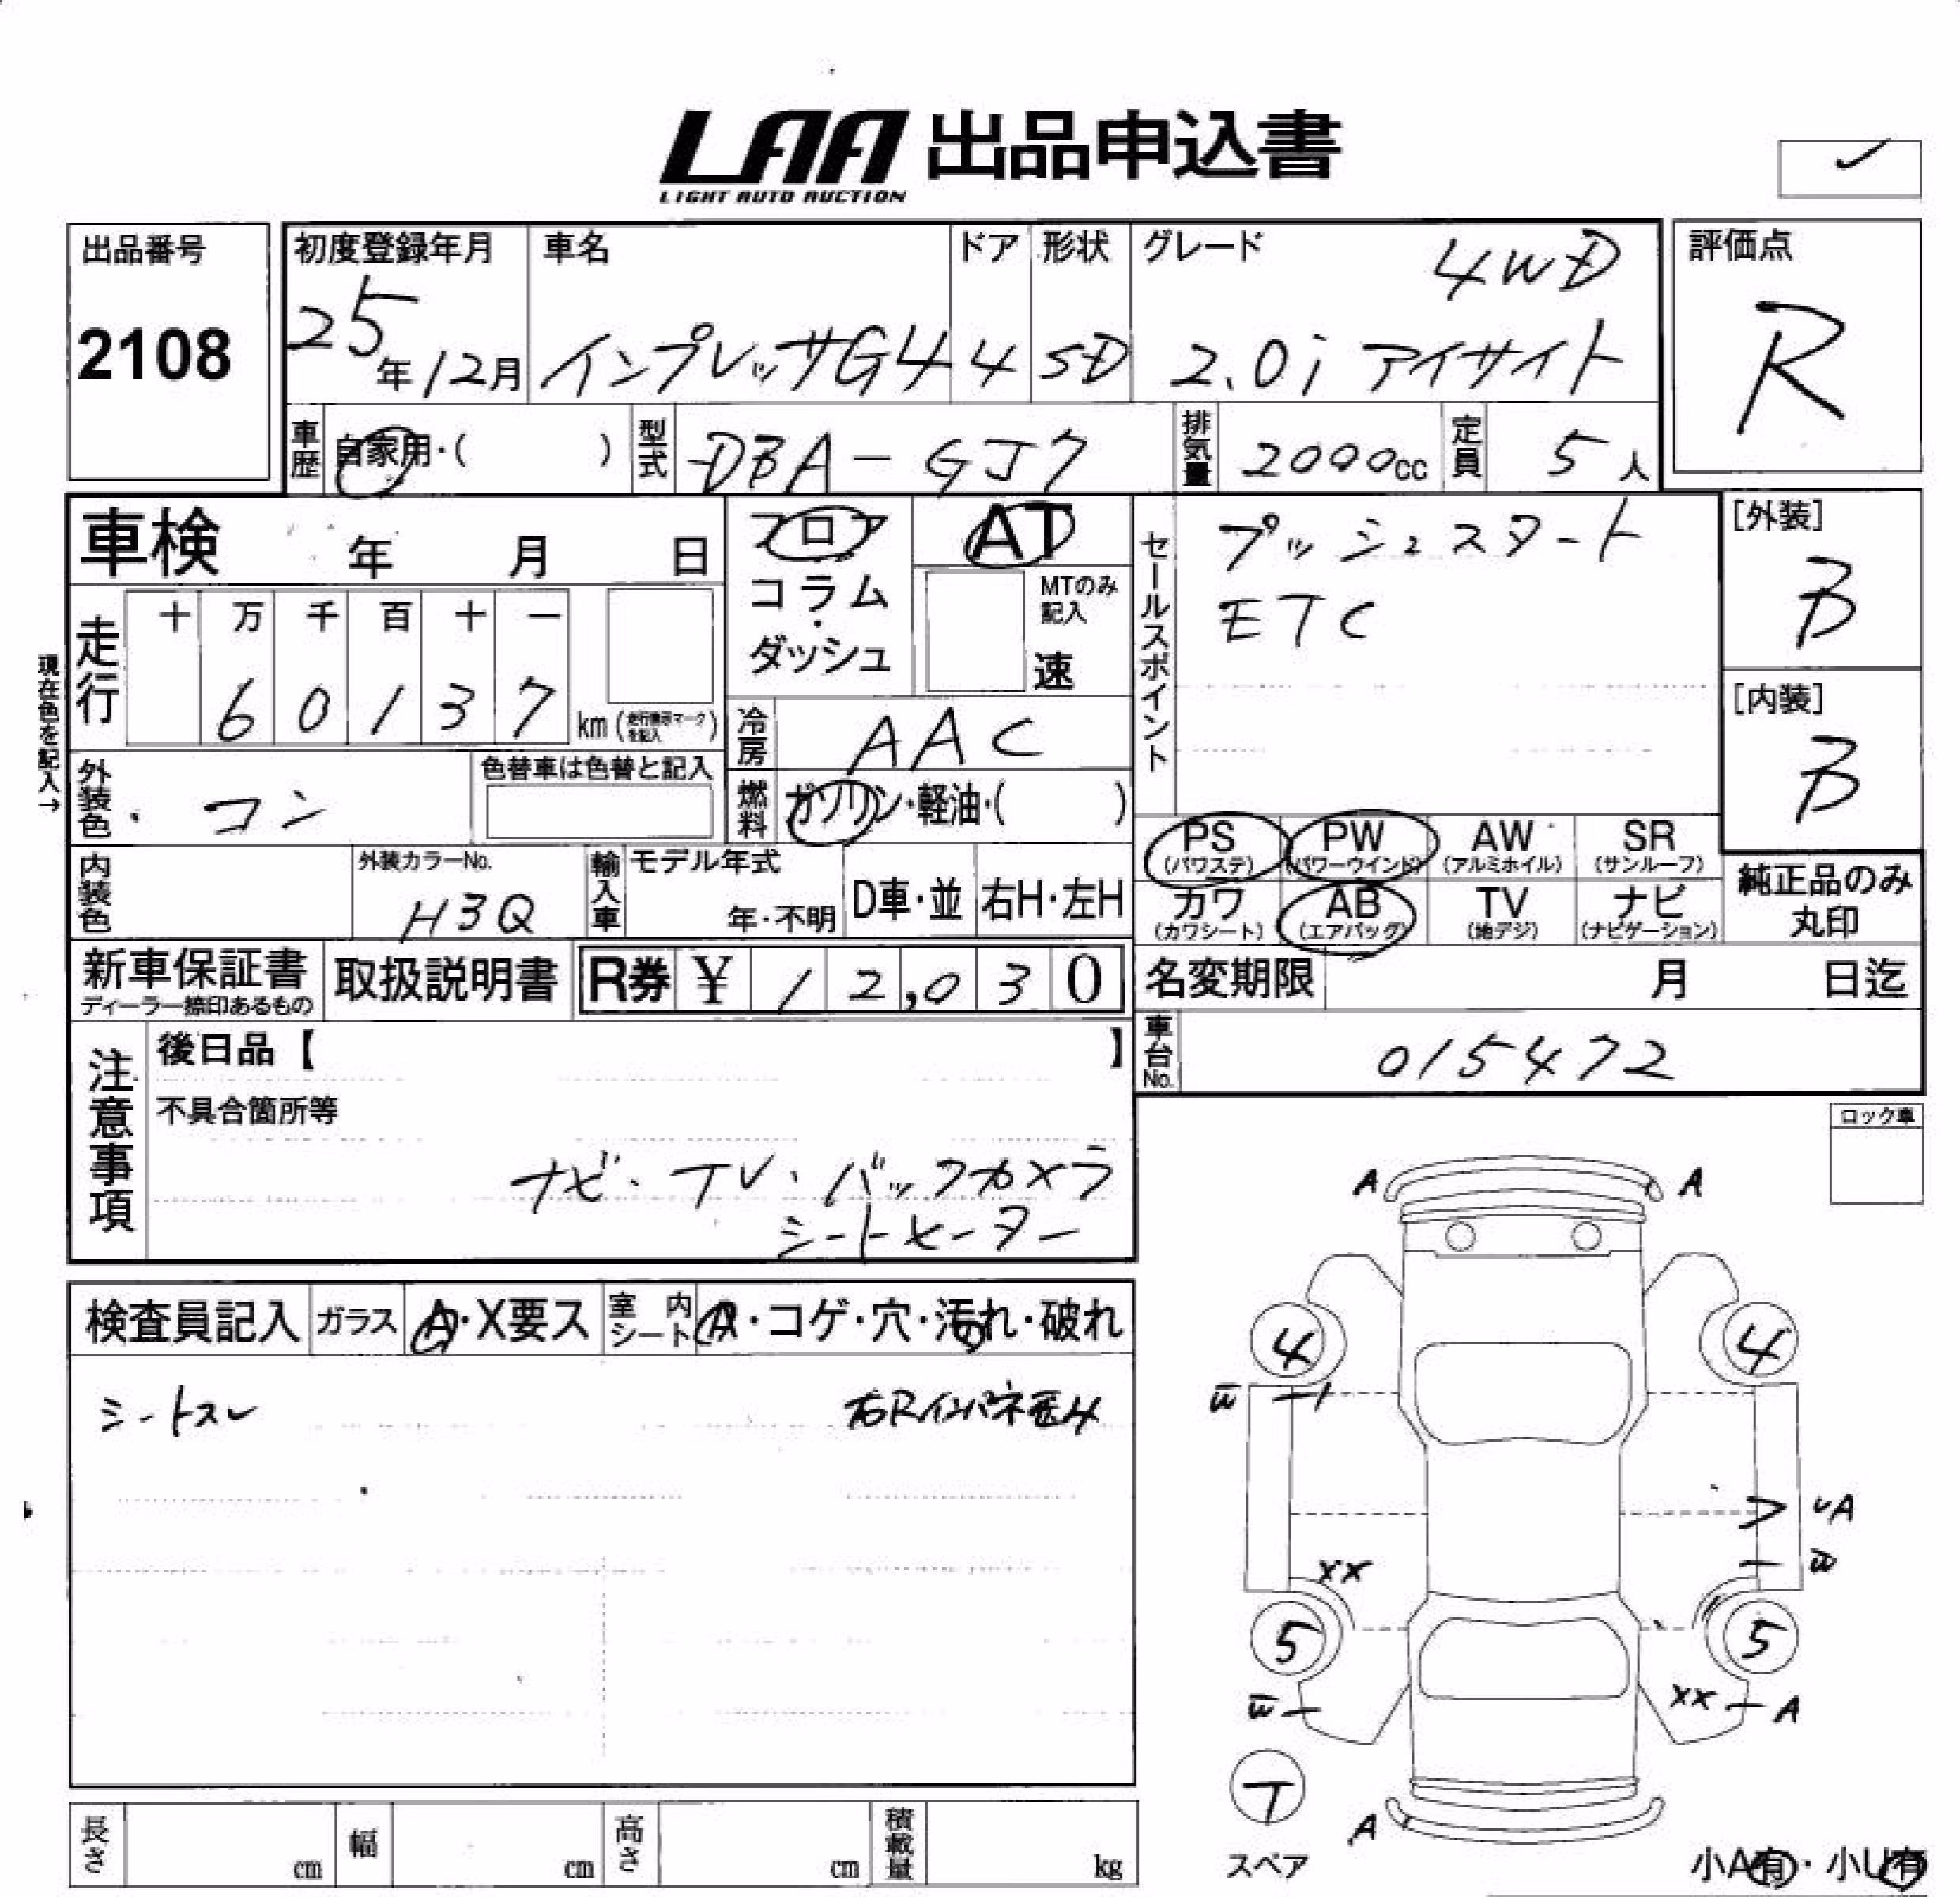 LAA 出品申込書
LIGHT AUTO AUCTION
出品番号
2108
初度登録年月
25年12月
車名
インプレッサG4
ドア
4
形状
SD
グレード
4WD
2.0i アイサイト
評価点
R
車歴 自家用・( )
型式 DBA-GJ7
排気量 2000cc
定員 5人
車検 年 月 日
フロア
コラム
・
ダッシュ
AT
MTのみ記入
速
セールスポイント
プッシュスタート
ETC
[外装]
B
[内装]
B
現在色を記入→
走行
十 万 千 百 十 一
6 0 1 3 7 km
冷房 AAC
外装色 ・ コン
色替車は色替と記入
燃料 ガソリン・軽油・( )
PS (パワステ)
PW (パワーウインド)
AW (アルミホイル)
SR (サンルーフ)
カワ (カワシート)
AB (エアバッグ)
TV (地デジ)
ナビ (ナビゲーション)
純正品のみ
丸印
内装色
外装カラーNo.
H3Q
輸入車
モデル年式
年・不明
D車・並
右H・左H
新車保証書
ディーラー捺印あるもの
取扱説明書
R券 ¥ 1 2,0 3 0
名変期限 月 日迄
車台No. 015472
注意事項
後日品【 】
不具合箇所等
ナビ・TV・バックカメラ
シートヒーター
ロック車
検査員記入
ガラス A・X要ス
室内シート A・コゲ・穴・汚れ・破れ
シートスレ
右Rインパネ歪み
A A
4 4
W
UA
W
XX
5 5
W
XX A
T
スペア
A
小A有・小U有
長さ cm
幅 cm
高さ cm
積載量 kg